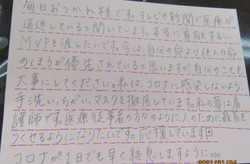 毎日おつかれ様です。テレビや新聞で医療が
逼迫していると聞いています。本当に尊敬するし
MVPを渡したいです。今は、自分の命より他人の命
のほうが優先されていると思いますが自分のことも
大事にしてください。私は、コロナに感染しないよう
手洗い、うがい、マスクを徹底しています。私の母は看
護師です。医療従事者の方々のように人のために最善を
つくせるようになりたいです。応援しています
コロナが1日でも早く終息しますように…。